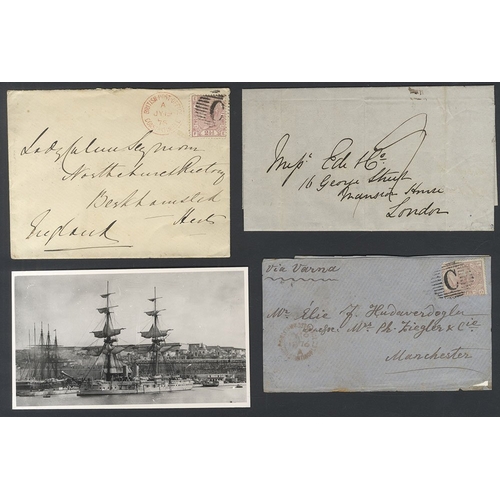 C
Lady Culme Seymour
Northchurch Rectory
Berkhamsted
Herts
England
Messrs Ede & Co
16 George Street
Mansion House
London
Via Varna
C
Mr. Élie J. Haduverdoglu
Mrs. Ph. Ziegler & Cie
Manchester